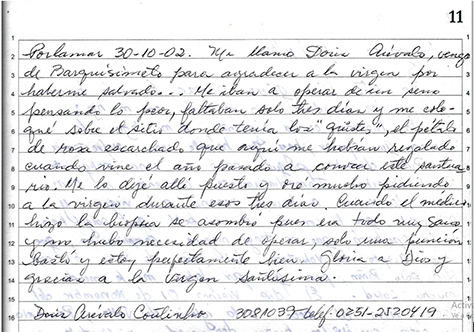 11
Porlamar 30-10-02. Me llamo Doris Arévalo, vengo
de Barquisimeto para agradecer a la virgen por
haberme salvado... Me iban a operar de un seno
pensando lo peor, faltaban solo tres días y me colo-
qué sobre el sitio donde tenía los "quistes", el pétalo
de rosa escarchado que aquí me habían regalado
cuando vine el año pasado a conocer este santua
rio. Me lo dejé allí puesto y oré mucho pidiendo
a la virgen durante esos tres días. Cuando el médico
hizo la biopsia se asombró pues era todo muy sano
y no hubo necesidad de operar, solo una punción
Bastó y estoy perfectamente bien Gloria a Dios y
gracias a la Virgen Santísima.
Doris Arevalo Coutinho 3081037 telef: 0251-2520419